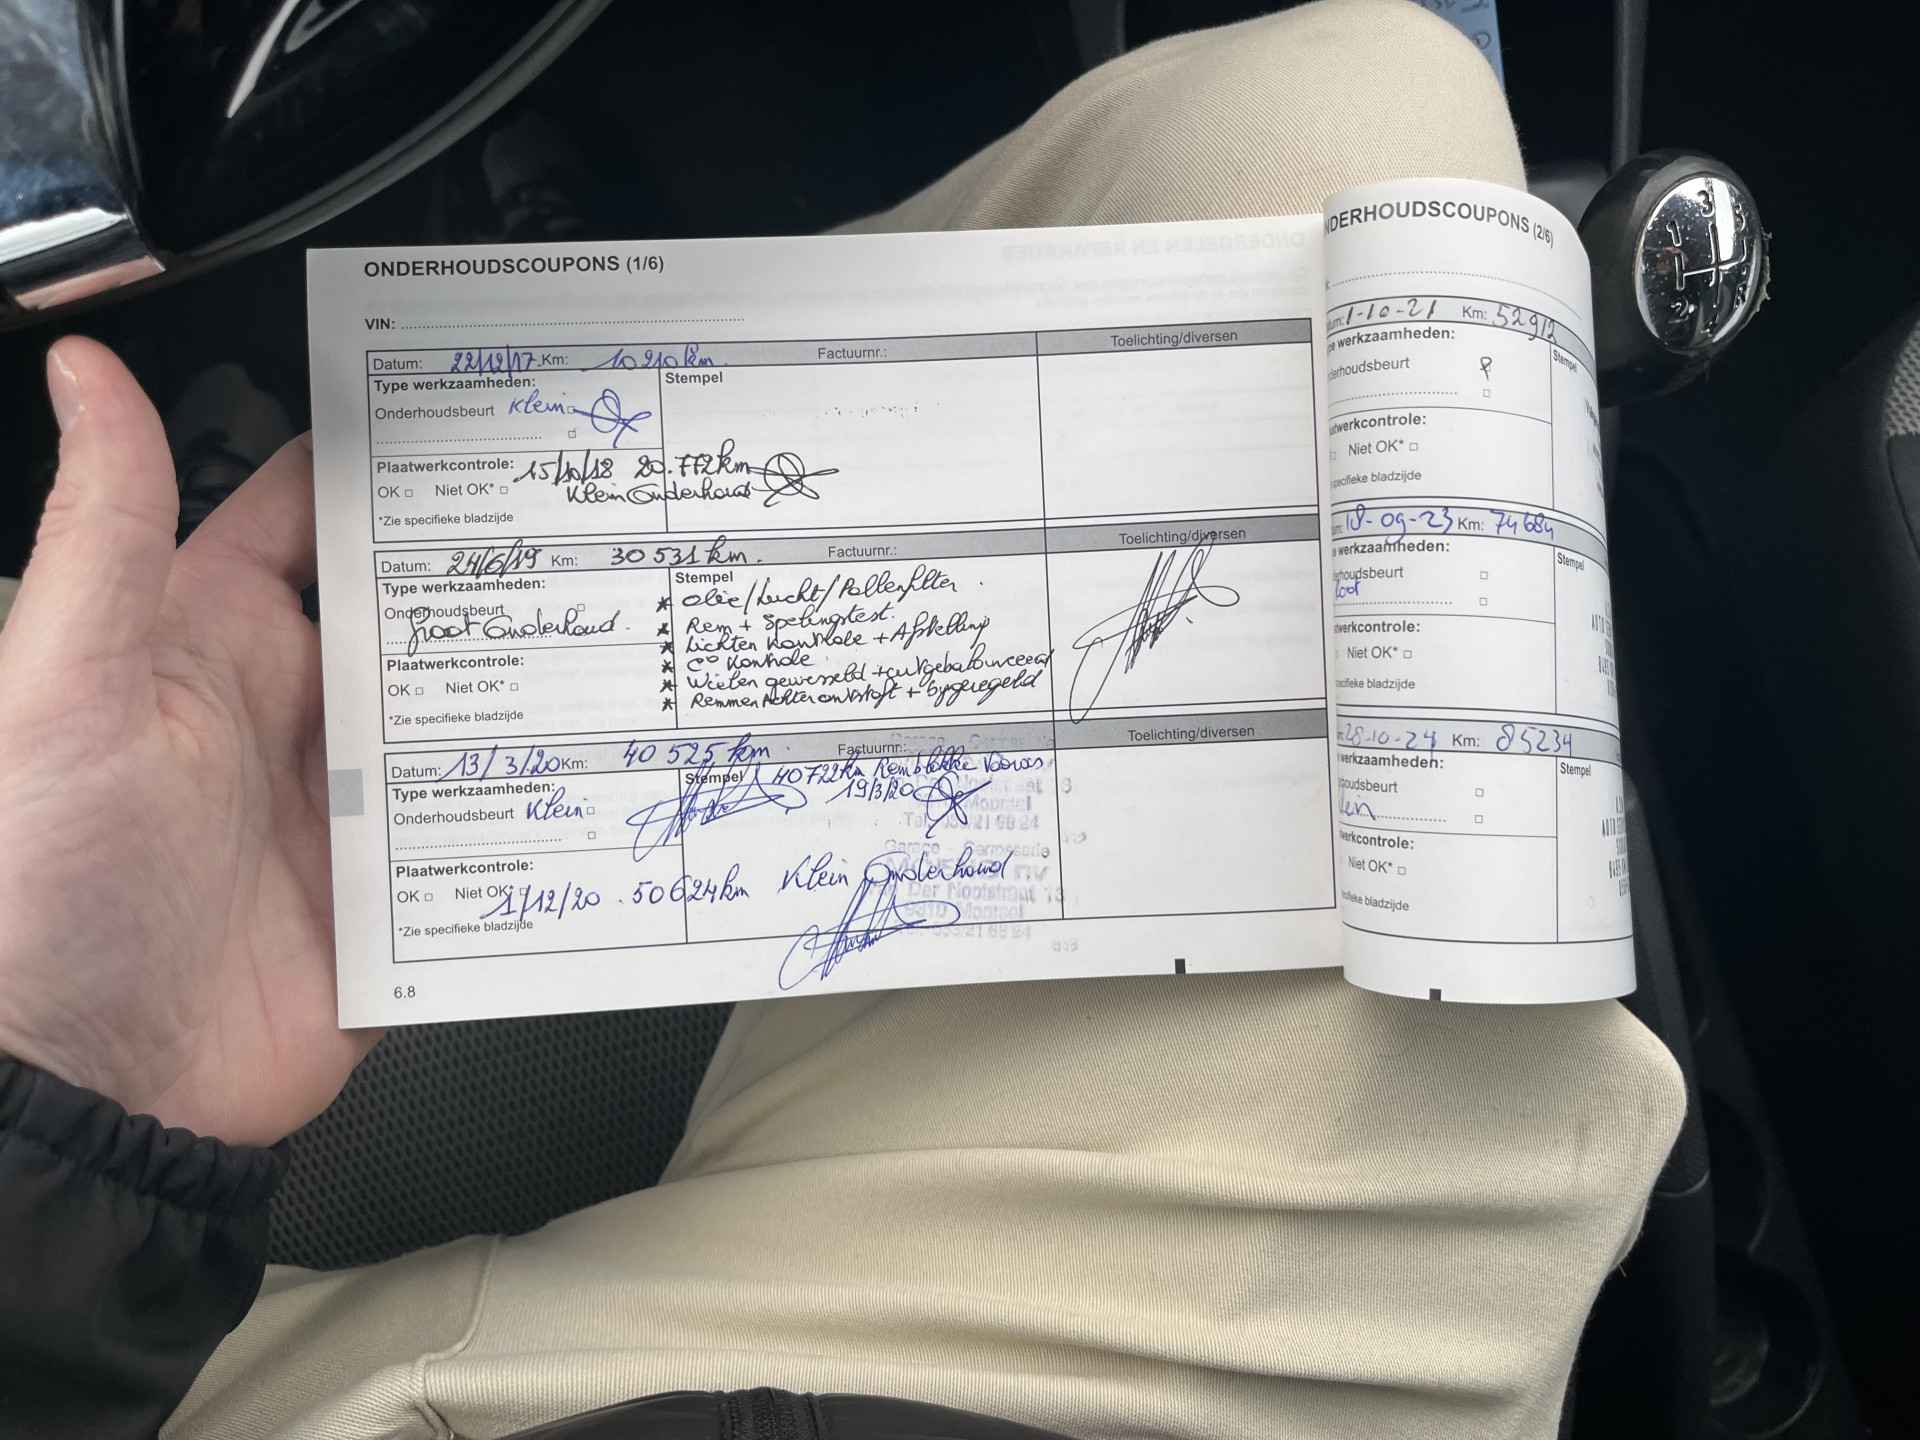 ONDERHOUDSCOUPONS (1/6)
VIN:
Datum: 22/12/17 Km: 10210 km. Factuurnr.: Toelichting/diversen
Type werkzaamheden: Stempel
Onderhoudsbeurt Klein
Plaatwerkcontrole: 15/10/18 20.772 km
OK Niet OK* Klein Onderhoud
*Zie specifieke bladzijde
Datum: 24/6/19 Km: 30 531 km. Factuurnr.: Toelichting/diversen
Type werkzaamheden: Stempel
Onderhoudsbeurt
Groot Onderhoud.
* Olie/Lucht/Pollenfilter.
* Rem + Spelingstest.
* Lichten Kontrole + Afstelling
* C° Kontrole.
* Wielen gewisseld + uitgebalanceerd
* Remmen Achter ontstoft + bygeregeld
Plaatwerkcontrole:
OK Niet OK*
*Zie specifieke bladzijde
Datum: 13/3/20 Km: 40 525 km. Factuurnr.: Toelichting/diversen
Type werkzaamheden: Stempel 40722km Remblokke Vooras
19/3/20
Onderhoudsbeurt Klein
Plaatwerkcontrole:
OK Niet OK*
1/12/20. 50624km Klein Onderhoud.
*Zie specifieke bladzijde
6.8
NDERHOUDSCOUPONS (2/6)
1-10-21 Km: 52912
werkzaamheden: Stempel
derhoudsbeurt
twerkcontrole:
Niet OK*
specifieke bladzijde
18-09-23 Km: 74684
werkzaamheden: Stempel
houdsbeurt
oot
werkcontrole:
Niet OK*
cifieke bladzijde
28-10-24 Km: 85234
werkzaamheden: Stempel
oudsbeurt
lein
werkcontrole:
Niet OK*
bladzijde
1 3 5
2